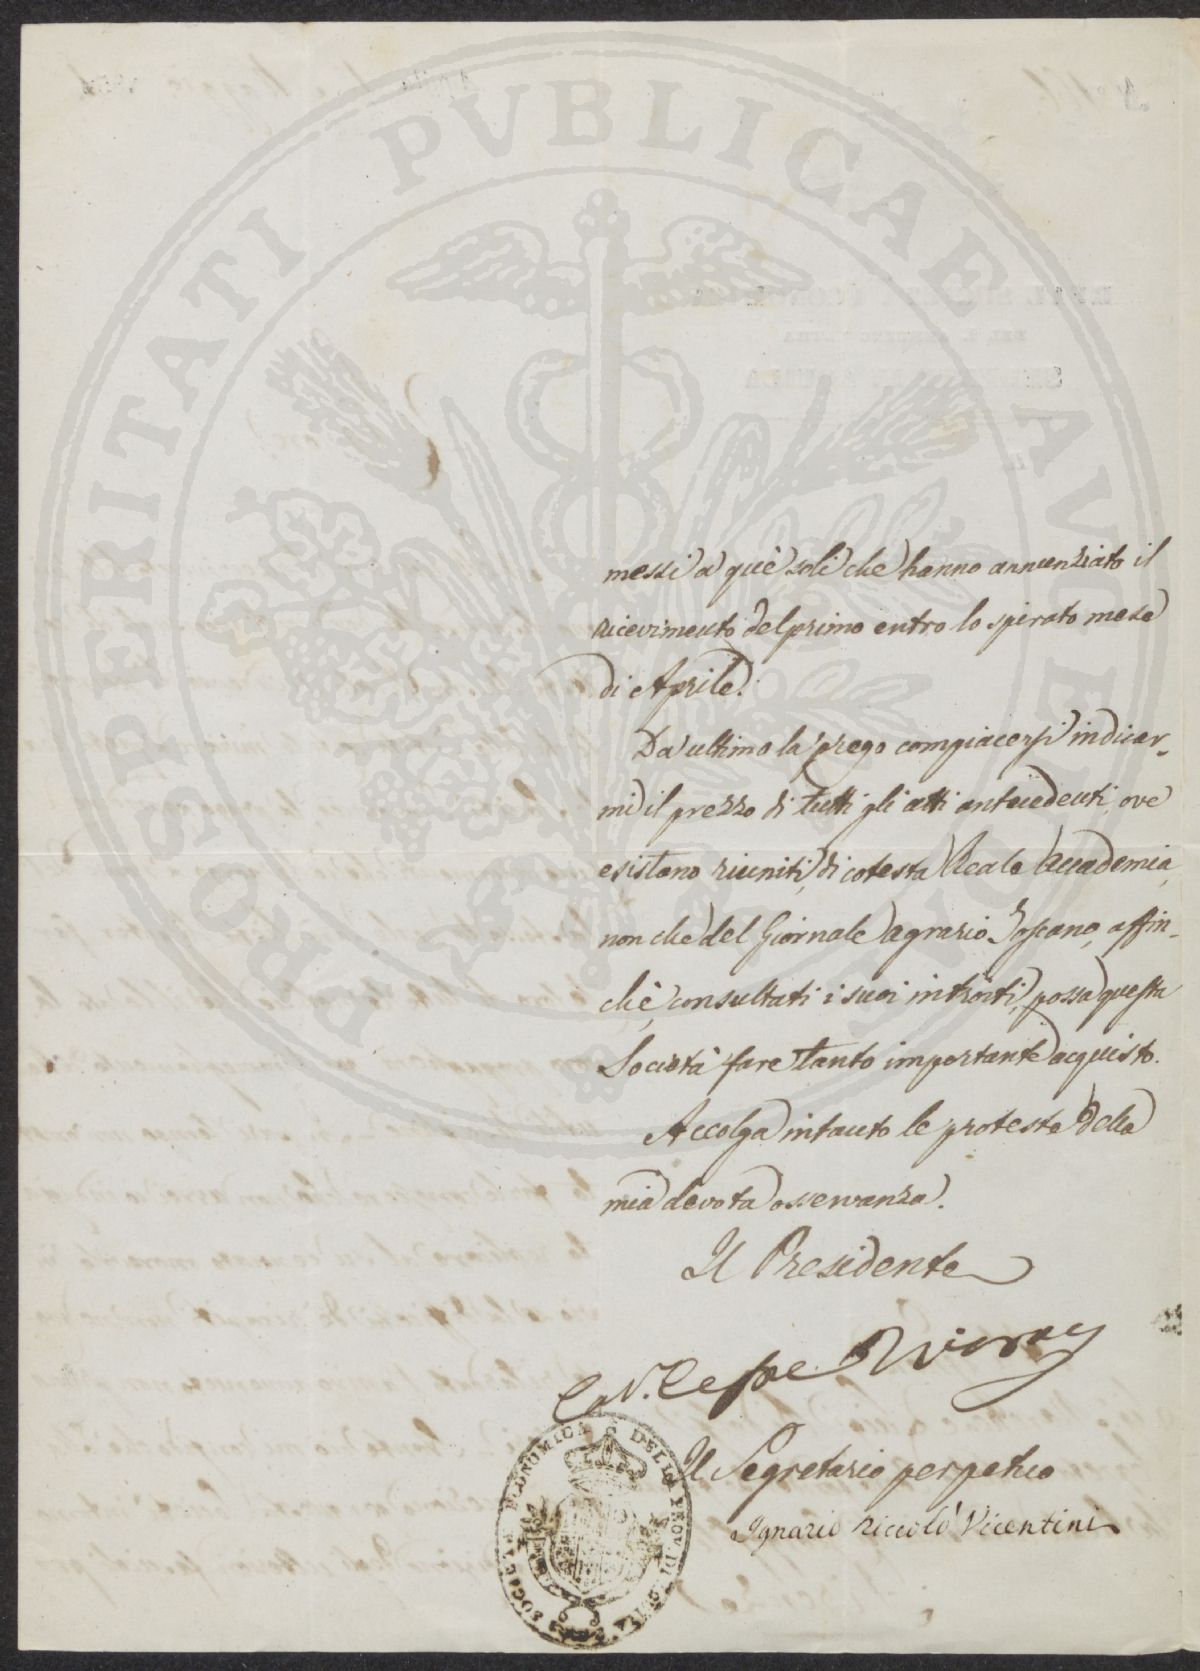 PROSPERITATI PUBLICAE AUGENDAE
messi a quei soli che hanno annunziato il
ricevimento del primo entro lo spirato mese
di Aprile.
Da ultimo la prego compiacersi indicar-
mi il prezzo di tutti gli atti antecedenti, ove
esistono riuniti, di cotesta Reale Accademia,
non che del Giornale agrario Toscano, affin-
chè, consultati i suoi introiti, possa questa
Società fare tanto importante acquisto.
Accolga intanto le proteste della
mia devota osservanza.
Il Presidente
Cav.
Il Segretario perpetuo
Ignazio Niccolò Vicentini
SOCIETA ECONOMICA DELLA PROV. DI